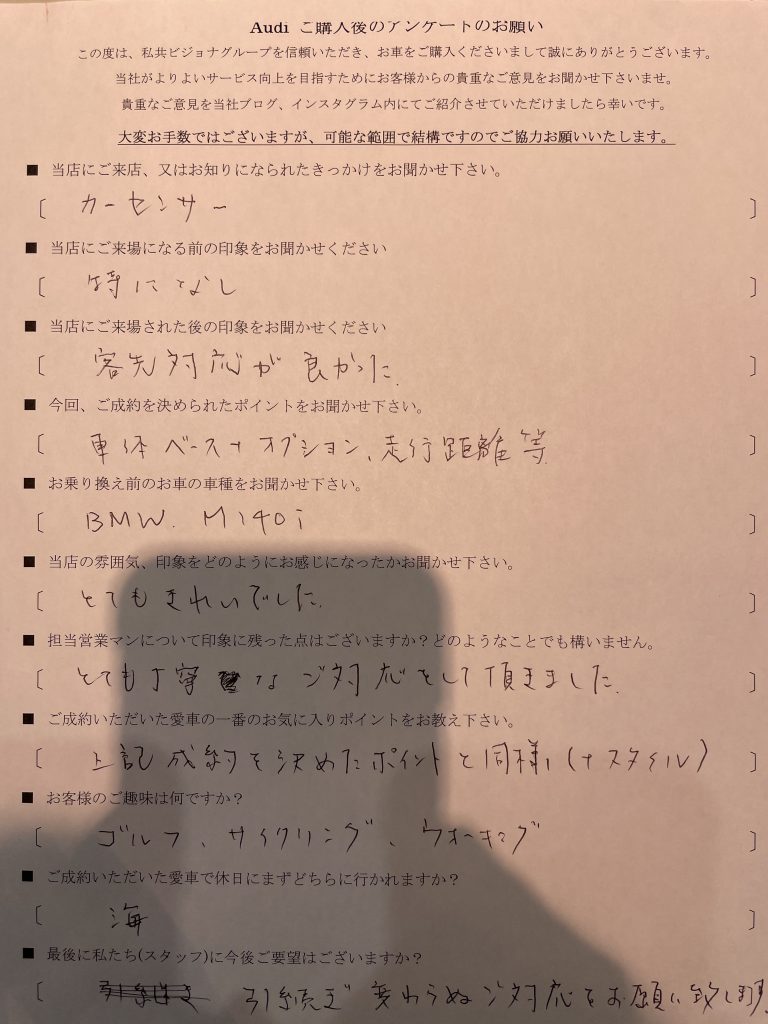 Audi ご購入後のアンケートのお願い
この度は、私共ビジョナグループを信頼いただき、お車をご購入くださいまして誠にありがとうございます。
当社がよりよいサービス向上を目指すためにお客様からの貴重なご意見をお聞かせ下さいませ。
貴重なご意見を当社ブログ、インスタグラム内にてご紹介させていただけましたら幸いです。
大変お手数ではございますが、可能な範囲で結構ですのでご協力お願いいたします。
■ 当店にご来店、又はお知りになられたきっかけをお聞かせ下さい。
〔 カーセンサー 〕
■ 当店にご来場になる前の印象をお聞かせください
〔 特になし 〕
■ 当店にご来場された後の印象をお聞かせください
〔 客先対応が良かった. 〕
■ 今回、ご成約を決められたポイントをお聞かせ下さい。
〔 車体ベース+オプション、走行距離等. 〕
■ お乗り換え前のお車の車種をお聞かせ下さい。
〔 BMW. M140i 〕
■ 当店の雰囲気、印象をどのようにお感じになったかお聞かせ下さい。
〔 とてもきれいでした. 〕
■ 担当営業マンについて印象に残った点はございますか？どのようなことでも構いません。
〔 とても丁寧なご対応をして頂きました. 〕
■ ご成約いただいた愛車の一番のお気に入りポイントをお教え下さい。
〔 上記成約を決めたポイントと同様,(+スタイル) 〕
■ お客様のご趣味は何ですか？
〔 ゴルフ、サイクリング、ウォーキング 〕
■ ご成約いただいた愛車で休日にまずどちらに行かれますか？
〔 海 〕
■ 最後に私たち(スタッフ)に今後ご要望はございますか？
〔 引続き 変わらぬご対応をお願い致します